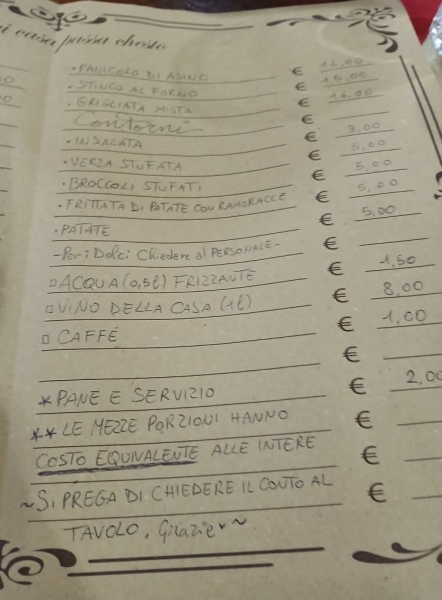 casa passa chesto
• PANICOLO DI ASINO € 14,00
• STINCO AL FORNO € 15,00
• GRIGLIATA MISTA € 16,00
Contorni €
• INSALATA € 3,00
• VERZA STUFATA € 5,00
• BROCCOLI STUFATI € 5,00
• FRITTATA DI PATATE CON RAMORACCE € 5,00
• PATATE € 5,00
- Per i Dolci Chiedere al PERSONALE - €
□ ACQUA (0,5l) FRIZZANTE € 1,50
□ VINO DELLA CASA (1l) € 8,00
□ CAFFÉ € 1,00
€
* PANE E SERVIZIO € 2,00
** LE MEZZE PORZIONI HANNO €
COSTO EQUIVALENTE ALLE INTERE €
~ SI PREGA DI CHIEDERE IL CONTO AL €
TAVOLO, Grazie ~